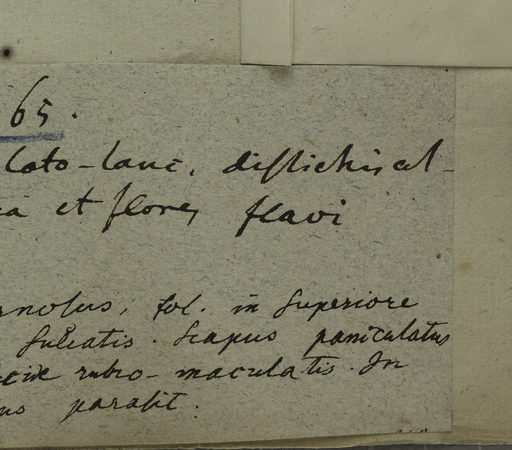 65.
lato-lanc. distichis al-
et flores flavi
fol. in superiore
sulcatis. Scapus paniculatus
rubro-maculatis. In
parasit.